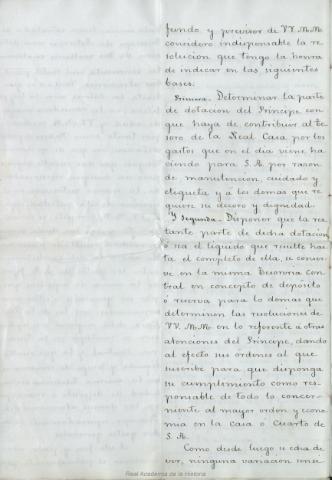 fundo y previsor de VV. M.M.
considero indispensable la re
solución que tengo la honra
de indicar en las siguientes
bases.
Primera. Determinar la parte
de dotación del Príncipe con
que haya de contribuir al Te
soro de la Real Casa por los
gastos que en el día viene ha
ciendo para S. A. por razon
de manutención, cuidado y
etiqueta y á los demas que re
quiere su decoro y dignidad.
Y Segunda. Disponer que la res
tante parte de dicha dotación
ó sea el líquido que resulte has
ta el completo de ella, se conser
ve en la misma Tesoreria Cen
tral en concepto de depósito
ó reserva para lo demas que
determinen las resoluciones de
VV. M.M. en lo referente á otras
atenciones del Príncipe, dando
al efecto sus órdenes al que
suscribe para que disponga
su cumplimiento como res-
ponsable de todo lo concer-
niente al mayor orden y econo
mia en la Casa ó Cuarto de
S. A.
Como desde luego se echa de
ver, ninguna variación
Real Academia de la Historia